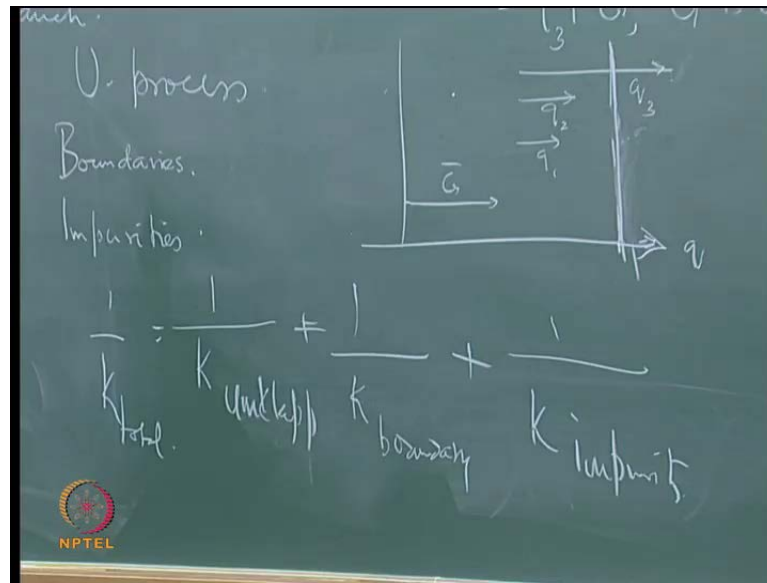 U. process
q₃ + G, G is
Boundaries.
Impurities.
G̅
q₂
q₁
q₃
q
1/K total. = 1/K umklapp + 1/K boundary + 1/K impurity
NPTEL